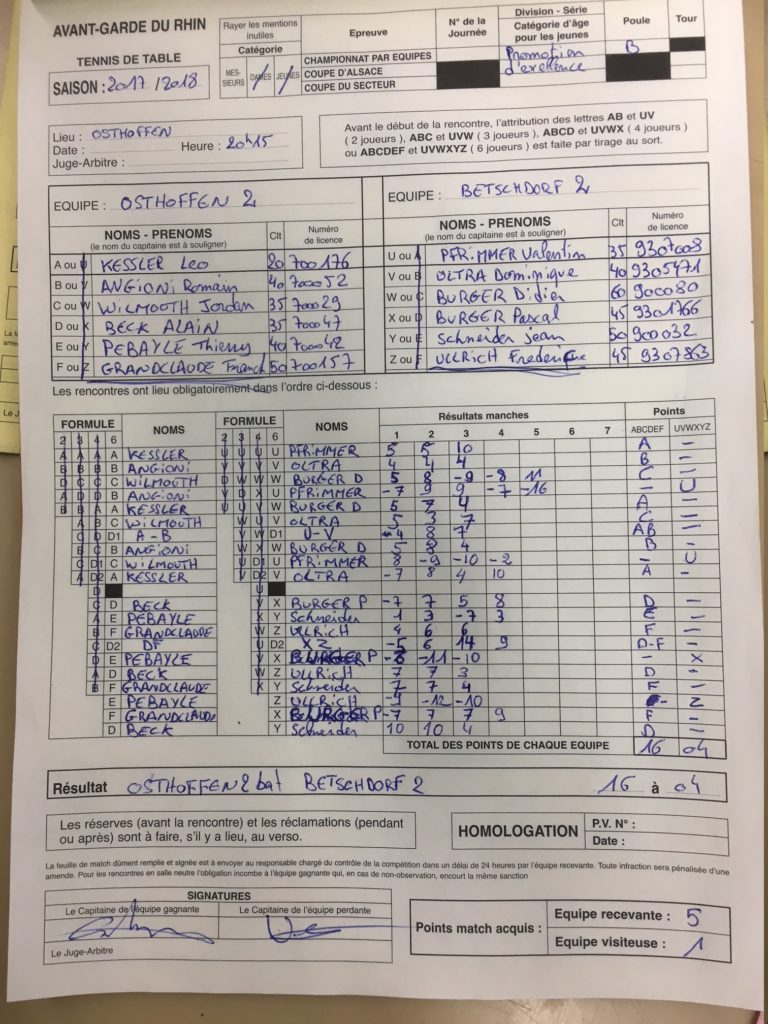 AVANT-GARDE DU RHIN
TENNIS DE TABLE
SAISON : 2017 / 2018
Rayer les mentions inutiles
Catégorie
MES-SIEURS DAMES JEUNES
Epreuve
CHAMPIONNAT PAR EQUIPES
COUPE D'ALSACE
COUPE DU SECTEUR
N° de la Journée
Division - Série
Catégorie d'âge pour les jeunes
Promotion d'excellence
Poule
B
Tour
Lieu : OSTHOFFEN
Date : Heure : 20h15
Juge-Arbitre :
Avant le début de la rencontre, l'attribution des lettres AB et UV
( 2 joueurs ), ABC et UVW ( 3 joueurs ), ABCD et UVWX ( 4 joueurs )
ou ABCDEF et UVWXYZ ( 6 joueurs ) est faite par tirage au sort.
EQUIPE : OSTHOFFEN 2
NOMS - PRENOMS Clt Numéro de licence
(le nom du capitaine est à souligner)
A ou U KESSLER Leo 20 700176
B ou V ANGIONI Romain 40 700052
C ou W WILMOUTH Jordan 35 700029
D ou X BECK ALAIN 35 700047
E ou Y PEBAYLE Thierry 40 700042
F ou Z GRANDCLAUDE Franck 50 700157
EQUIPE : BETSCHDORF 2
NOMS - PRENOMS Clt Numéro de licence
(le nom du capitaine est à souligner)
U ou A PFRIMMER Valentin 35 9307008
V ou B OLTRA Dominique 40 9305471
W ou C BURGER Didier 60 900080
X ou D BURGER Pascal 45 9301766
Y ou E Schneider jean 50 900032
Z ou F ULLRICH Frederique 45 9307863
Les rencontres ont lieu obligatoirement dans l'ordre ci-dessous :
FORMULE NOMS FORMULE NOMS Résultats manches Points
2 3 4 6 2 3 4 6 1 2 3 4 5 6 7 ABCDEF UVWXYZ
A KESSLER U PFRIMMER 5 5 10 A –
B ANGIONI V OLTRA 4 4 4 B –
C WILMOUTH W BURGER D 5 8 -9 -8 11 C –
B ANGIONI U PFRIMMER -7 9 9 -7 -16 – U
A KESSLER W BURGER D 5 7 4 A –
C WILMOUTH V OLTRA 5 3 7 C –
D1 A - B D1 U - V -4 8 7 AB –
B ANGIONI W BURGER D 5 8 4 B –
C WILMOUTH U PFRIMMER 8 -9 -10 -2 – U
A KESSLER V OLTRA -7 8 4 10 A –
D BECK X BURGER P -7 7 5 8 D –
E PEBAYLE Y Schneider 1 3 -7 3 E –
F GRANDCLAUDE Z ULLRICH 4 6 6 F –
D2 DF D2 X Z -5 6 14 9 D-F –
E PEBAYLE X BURGER P -6 -11 -10 – X
D BECK Z ULLRICH 7 7 3 D –
F GRANDCLAUDE Y Schneider 7 7 4 F –
E PEBAYLE Z ULLRICH -9 -12 -10 – Z
F GRANDCLAUDE X BURGER P -7 7 7 9 F –
D BECK Y Schneider 10 10 4 D –
TOTAL DES POINTS DE CHAQUE EQUIPE 16 04
Résultat OSTHOFFEN 2 bat BETSCHDORF 2 16 à 04
Les réserves (avant la rencontre) et les réclamations (pendant
ou après) sont à faire, s'il y a lieu, au verso.
HOMOLOGATION
P.V. N° :
Date :
La feuille de match dûment remplie et signée est à envoyer au responsable chargé du contrôle de la compétition dans un délai de 24 heures par l'équipe recevante. Toute infraction sera pénalisée d'une
amende. Pour les rencontres en salle neutre l'obligation incombe à l'équipe gagnante qui, en cas de non-observation, encourt la même sanction
SIGNATURES
Le Capitaine de l'équipe gagnante Le Capitaine de l'équipe perdante
Le Juge-Arbitre
Points match acquis :
Equipe recevante : 5
Equipe visiteuse : 1